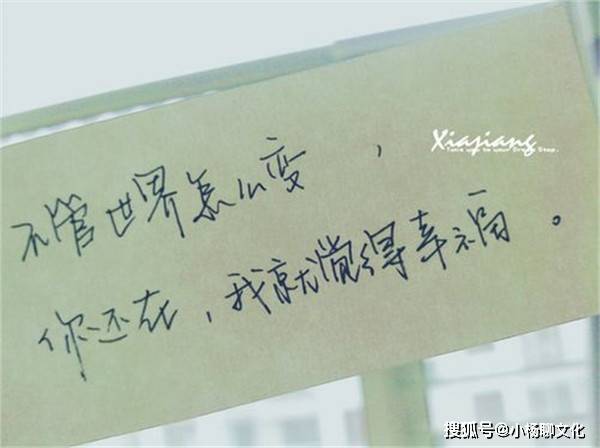 Xiajiang
不管世界怎么变，
你还在，我就觉得幸福。
搜狐号@小杨聊文化